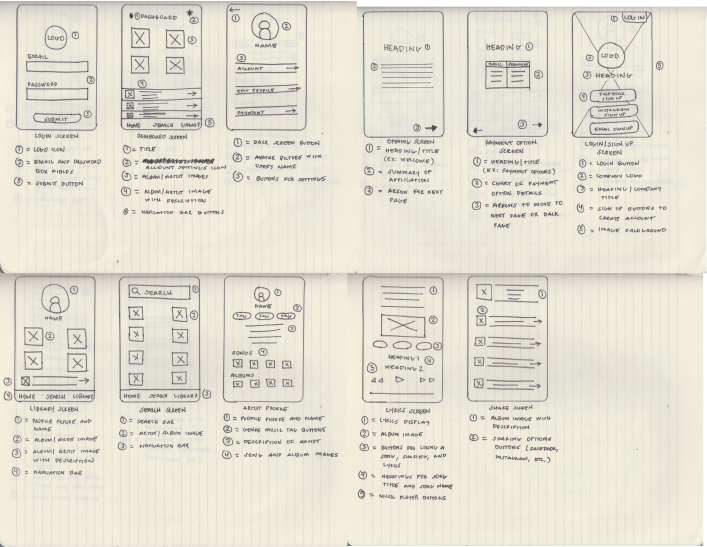 LOGO ①
EMAIL
PASSWORD
②
SUBMIT ③
LOGIN SCREEN
① = LOGO ICON
② = EMAIL AND PASSWORD
BOX FIELDS
③ = SUBMIT BUTTON
① DASHBOARD
②
③
④
HOME SEARCH LIBRARY ⑤
DASHBOARD SCREEN
① = TITLE
② =
ACCOUNT SETTINGS ICON
③ = ALBUM/ARTIST IMAGES
④ = ALBUM/ARTIST IMAGE
WITH DESCRIPTION
⑤ = NAVIGATION BAR BUTTONS
①
②
NAME
③
ACCOUNT
EDIT PROFILE
PAYMENT
① = BACK SCREEN BUTTON
② = AVATAR PICTURE WITH
USER'S NAME
③ = BUTTONS FOR SETTINGS
HEADING ①
②
③
OPENING SCREEN
① = HEADING/TITLE
(EX: WELCOME)
② = SUMMARY OF
APPLICATION
③ = ARROW FOR NEXT
PAGE
HEADING ①
BASIC PREMIUM
②
③
PAYMENT OPTION
SCREEN
① = HEADING/TITLE
(EX: PAYMENT OPTIONS)
② = CHART OF PAYMENT
OPTION DETAILS
③ = ARROWS TO MOVE TO
NEXT PAGE OR BACK
PAGE
① LOG IN
② LOGO
③ HEADING
④ FACEBOOK
SIGN UP
INSTAGRAM
SIGN UP
EMAIL SIGNUP
⑤
LOGIN/SIGN UP
SCREEN
① = LOGIN BUTTON
② = COMPANY LOGO
③ = HEADING/COMPANY
TITLE
④ = SIGN UP BUTTONS TO
CREATE ACCOUNT
⑤ = IMAGE BACKGROUND
①
NAME
②
③
④ HOME SEARCH LIBRARY
LIBRARY SCREEN
① = PROFILE PICTURE AND
NAME
② = ALBUM/ARTIST IMAGE
③ = ALBUM/ARTIST IMAGE
WITH DESCRIPTION
④ = NAVIGATION BAR
SEARCH ①
②
HOME SEARCH LIBRARY ③
SEARCH SCREEN
① = SEARCH BAR
② = ARTIST/ALBUM IMAGE
③ = NAVIGATION BAR
①
NAME
TAG TAG TAG ②
③
SONGS ④
ALBUMS
ARTIST PROFILE
① = PROFILE PICTURE AND NAME
② = GENRE MUSIC TAG BUTTONS
③ = DESCRIPTION OF ARTIST
④ = SONG AND ALBUM IMAGES
①
②
③
HEADING 1 ④
⑤ HEADING 2
LYRICS SCREEN
① = LYRICS DISPLAY
② = ALBUM IMAGE
③ = BUTTONS FOR LIKING A
SONG, SHARING, AND
LYRICS
④ = HEADINGS FOR SONG
TITLE AND SONG NAME
⑤ = MUSIC PLAYER BUTTONS
①
②
SHARE SCREEN
① = ALBUM IMAGE WITH
DESCRIPTION
② = SHARING OPTIONS
BUTTONS (FACEBOOK,
INSTAGRAM, ETC.)